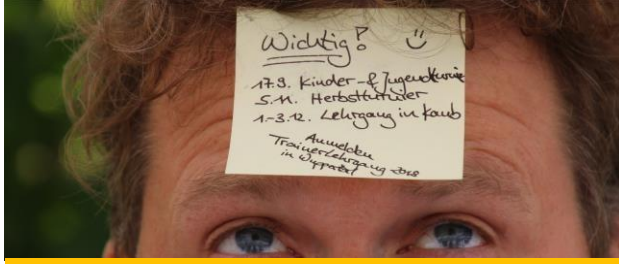 Wichtig! ☺
17.9. Kinder- & Jugendturnier
5.11. Herbstturnier
1.-3.12. Lehrgang in Kaub
Anmelden
Trainerlehrgang 2018
in Wuppertal